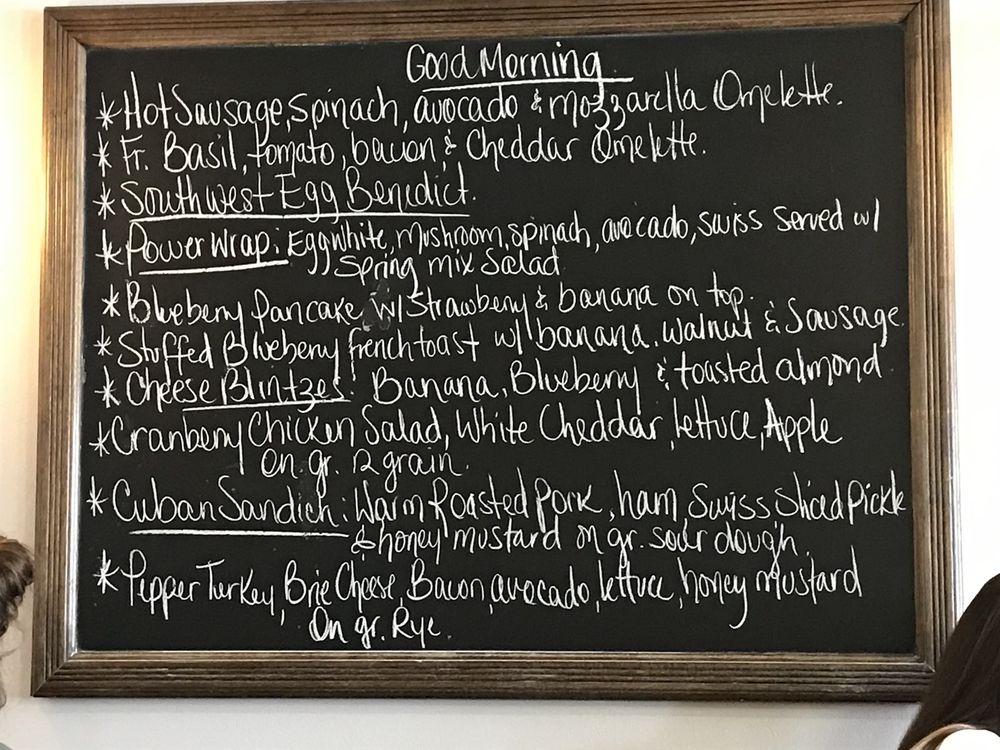 Good Morning
* Hot Sausage, Spinach, avocado & mozzarella Omelette.
* Fr. Basil, tomato, bacon & Cheddar Omelette.
* Southwest Egg Benedict.
* Power Wrap: Eggwhite, mushroom, spinach, avocado, swiss served w/
Spring mix Salad
* Blueberry Pancake w/ Strawberry & banana on top.
* Stuffed Blueberry french toast w/ banana, walnut & Sausage
* Cheese Blintzes: Banana, Blueberry & toasted almond
* Cranberry Chicken Salad, White Cheddar, lettuce, Apple
On gr. 12 grain.
* Cuban Sandich: Warm Roasted Pork, ham, Swiss Sliced Pickle
& honey mustard on gr. sour dough.
* Pepper Turkey, Brie Cheese, Bacon, avocado, lettuce, honey mustard
On gr. Rye.